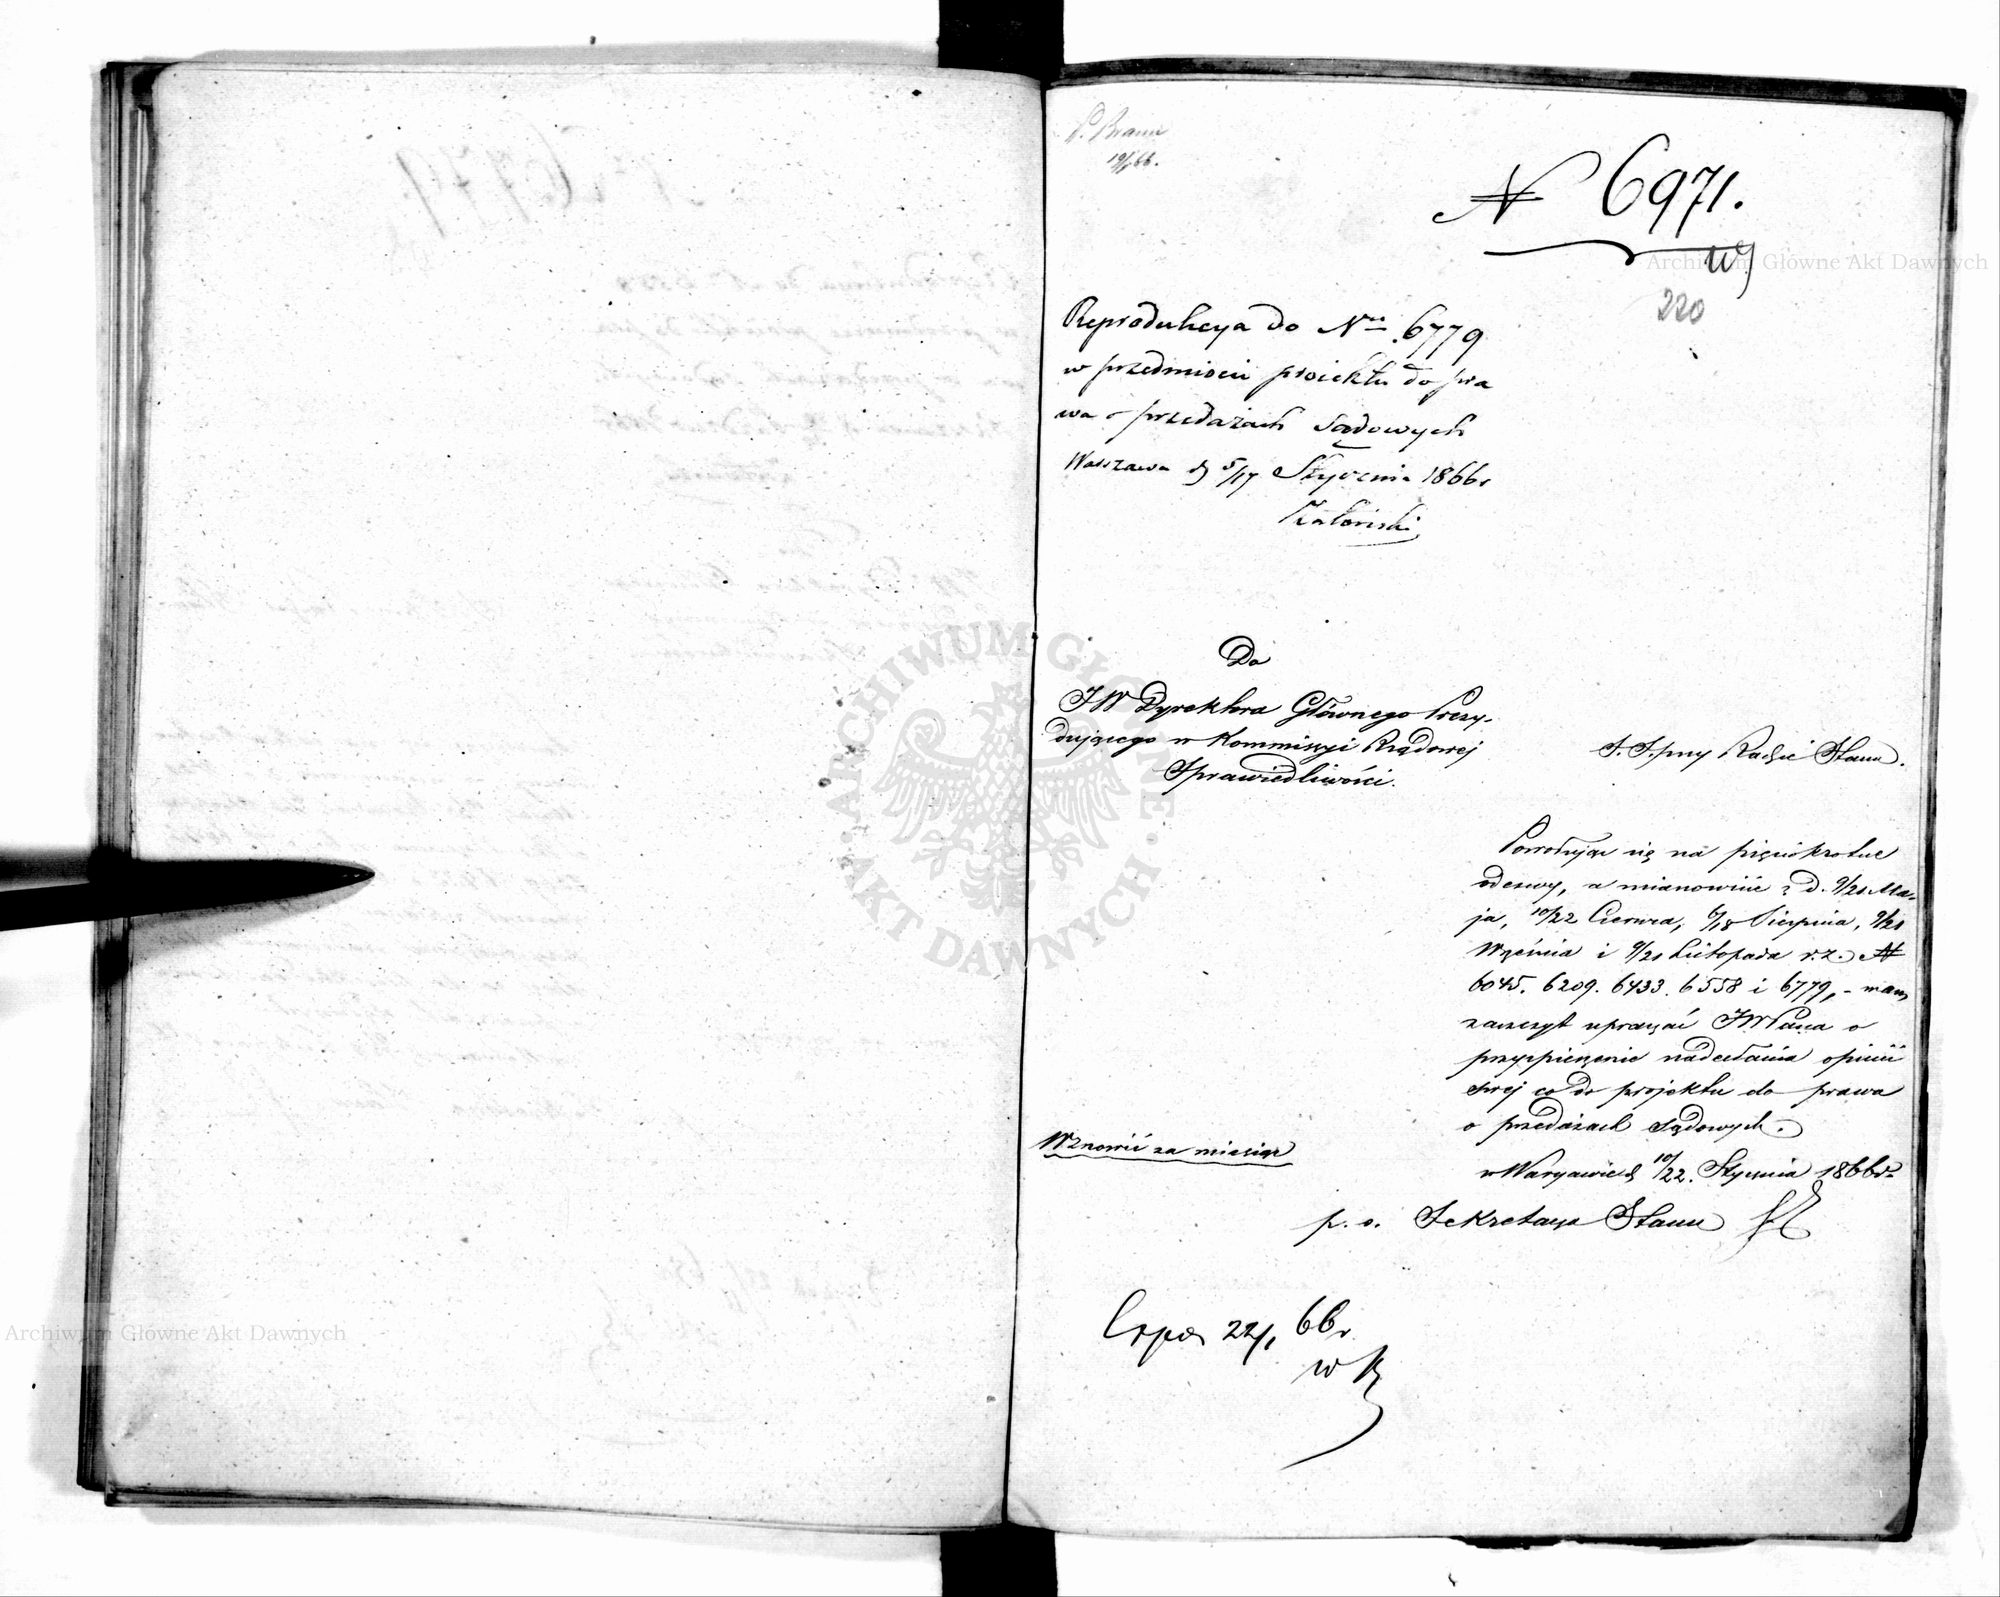 P. Braun
19/1 66.
N 6971.
220
Reprodukcya do Nru 6779
w przedmiocie proiektu do pra
wa o przedażach Sądowych
Warszawa d 5/17 Stycznia 1866r
Do
JW Dyrektora Głównego Prezy-
dującego w Kommissyi Rządowej
Sprawiedliwości.
Radzie Stanu.
Powołując się na pięciokrotne
odezwy, a mianowicie z d. 9/21 Ma-
ja, 10/22 Czerwca, 6/18 Sierpnia, 9/21
Września i 9/21 Listopada r.z. N
6045. 6209. 6433. 6558 i 6779, - mam
zaszczyt upraszać JWPana o
przyspieszenie nadesłania opinii
swej co do projektu do prawa
o przedażach Sądowych.
w Warszawie d 10/22. Stycznia 1866r
Wznowić za miesiąc
p. o. Sekretarza Stanu
Exped 22/1 66r
Archiwum Główne Akt Dawnych
Archiwum Główne Akt Dawnych
ARCHIWUM GŁÓWNE · AKT DAWNYCH ·